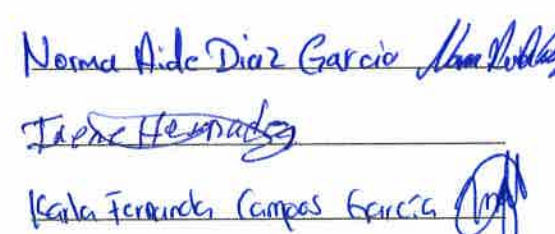 Norma Aide Diaz Garcia
Irene Hernadez
Karla Fernanda Campos García